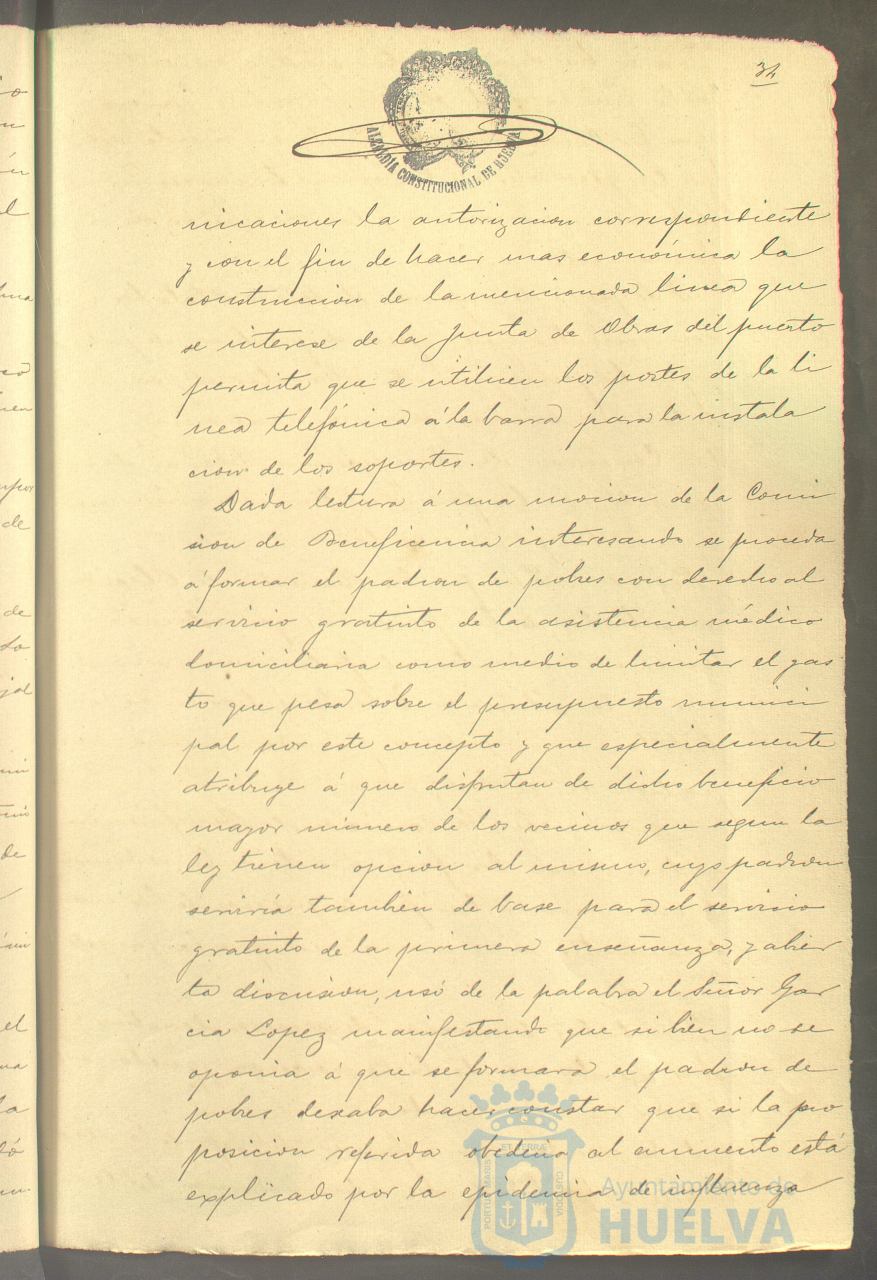 34
ALCALDÍA CONSTITUCIONAL DE HUELVA
nicaciones la autorizacion correspondiente
y con el fin de hacer mas económica la
construccion de la mencionada linea que
se interese de la Junta de Obras del puerto
permita que se utilicen los postes de la li
nea telefónica á la barra para la instala
cion de los soportes.
Dada lectura á una mocion de la Comi
sion de Beneficencia interesando se proceda
á formar el padron de pobres con derecho al
servicio gratuito de la asistencia médico
domiciliaria como medio de limitar el gas
to que pesa sobre el presupuesto munici
pal por este concepto y que especialmente
atribuye á que disfrutan de dicho beneficio
mayor número de los vecinos que segun la
ley tienen opcion al mismo, cuyo padron
serviria tambien de base para el servicio
gratuito de la primera enseñanza, y abier
ta discusion, usó de la palabra el Señor Gar
cia Lopez manifestando que si bien no se
oponia á que se formara el padron de
pobres deseaba hacer constar que si la pro
posicion referida obedecia al aumento está
explicado por la epidemia de influenza
Ayuntamiento de
HUELVA